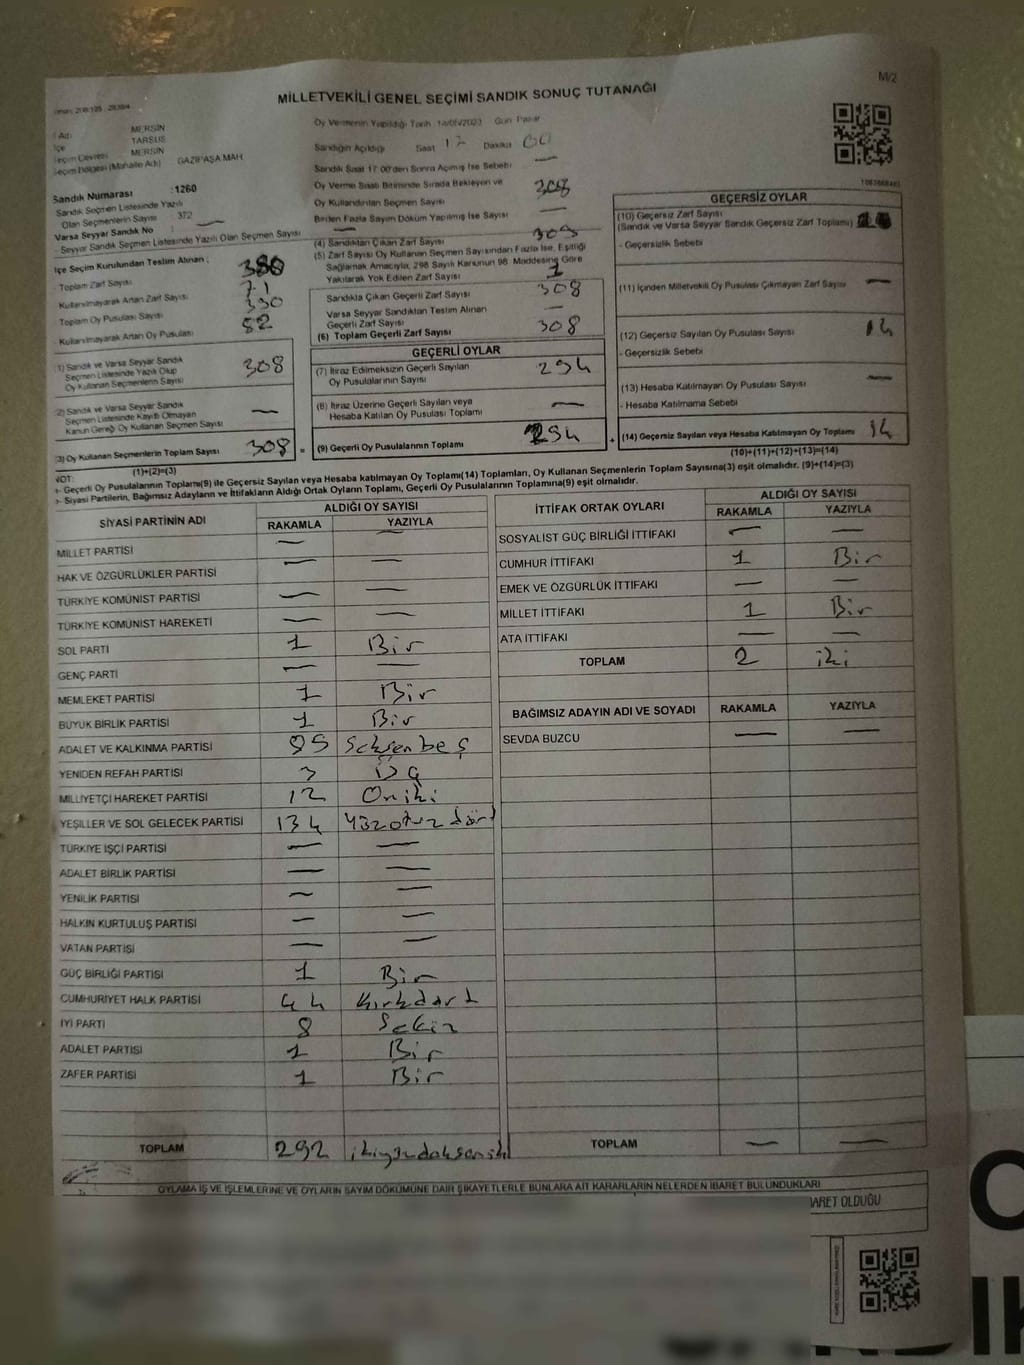 M/2
MİLLETVEKİLİ GENEL SEÇİMİ SANDIK SONUÇ TUTANAĞI
İl Adı MERSİN
İlçe TARSUS
Seçim Çevresi MERSİN
Seçim Bölgesi (Mahalle Adı) GAZİPAŞA MAH.
Sandık Numarası : 1260
Sandık Seçmen Listesinde Yazılı
Olan Seçmenlerin Sayısı : 372
Varsa Seyyar Sandık No : —
- Seyyar Sandık Seçmen Listesinde Yazılı Olan Seçmen Sayısı —
İlçe Seçim Kurulundan Teslim Alınan ;
Toplam Zarf Sayısı 380
Kullanılmayarak Artan Zarf Sayısı 71
Toplam Oy Pusulası Sayısı 390
Kullanılmayarak Artan Oy Pusulası 82
1) Sandık ve Varsa Seyyar Sandık
Seçmen Listesinde Yazılı Olup
Oy Kullanan Seçmenlerin Sayısı 308
2) Sandık ve Varsa Seyyar Sandık
Seçmen Listesinde Kayıtlı Olmayan
Kanun Gereği Oy Kullanan Seçmen Sayısı —
3) Oy Kullanan Seçmenlerin Toplam Sayısı 308
(1)+(2)=(3)
Oy Vermenin Yapıldığı Tarih 14/05/2023 Gün Pazar
Sandığın Açıldığı Saat 17 Dakika 00
Sandık Saat 17.00'den Sonra Açılmış İse Sebebi —
Oy Verme Saati Bitiminde Sırada Bekleyen ve
Oy Kullandırılan Seçmen Sayısı 308
Birden Fazla Sayım Döküm Yapılmış İse Sayısı —
(4) Sandıktan Çıkan Zarf Sayısı 309
(5) Zarf Sayısı Oy Kullanan Seçmen Sayısından Fazla İse, Eşitliği
Sağlamak Amacıyla, 298 Sayılı Kanunun 98. Maddesine Göre
Yakılarak Yok Edilen Zarf Sayısı 1
Sandıkta Çıkan Geçerli Zarf Sayısı 308
Varsa Seyyar Sandıktan Teslim Alınan
Geçerli Zarf Sayısı —
(6) Toplam Geçerli Zarf Sayısı 308
GEÇERLİ OYLAR
(7) İtiraz Edilmeksizin Geçerli Sayılan
Oy Pusulalarının Sayısı 294
(8) İtiraz Üzerine Geçerli Sayılan veya
Hesaba Katılan Oy Pusulası Toplamı —
(9) Geçerli Oy Pusulalarının Toplamı 294
GEÇERSİZ OYLAR
(10) Geçersiz Zarf Sayısı
(Sandık ve Varsa Seyyar Sandık Geçersiz Zarf Toplamı)
- Geçersizlik Sebebi
(11) İçinden Milletvekili Oy Pusulası Çıkmayan Zarf Sayısı —
(12) Geçersiz Sayılan Oy Pusulası Sayısı 14
- Geçersizlik Sebebi
(13) Hesaba Katılmayan Oy Pusulası Sayısı —
- Hesaba Katılmama Sebebi
(14) Geçersiz Sayılan veya Hesaba Katılmayan Oy Toplamı 14
(10)+(11)+(12)+(13)=(14)
NOT:
- Geçerli Oy Pusulalarının Toplamı(9) ile Geçersiz Sayılan veya Hesaba katılmayan Oy Toplamı(14) Toplamları, Oy Kullanan Seçmenlerin Toplam Sayısına(3) eşit olmalıdır. (9)+(14)=(3)
- Siyasi Partilerin, Bağımsız Adayların ve İttifakların Aldığı Ortak Oyların Toplamı, Geçerli Oy Pusulalarının Toplamına(9) eşit olmalıdır.
SİYASİ PARTİNİN ADI ALDIĞI OY SAYISI
RAKAMLA YAZIYLA
MİLLET PARTİSİ — —
HAK VE ÖZGÜRLÜKLER PARTİSİ — —
TÜRKİYE KOMÜNİST PARTİSİ — —
TÜRKİYE KOMÜNİST HAREKETİ — —
SOL PARTİ 1 Bir
GENÇ PARTİ — —
MEMLEKET PARTİSİ 1 Bir
BÜYÜK BİRLİK PARTİSİ 1 Bir
ADALET VE KALKINMA PARTİSİ 85 Seksenbeş
YENİDEN REFAH PARTİSİ 3 Üç
MİLLİYETÇİ HAREKET PARTİSİ 12 Oniki
YEŞİLLER VE SOL GELECEK PARTİSİ 134 Yüzotuzdört
TÜRKİYE İŞÇİ PARTİSİ — —
ADALET BİRLİK PARTİSİ — —
YENİLİK PARTİSİ — —
HALKIN KURTULUŞ PARTİSİ — —
VATAN PARTİSİ — —
GÜÇ BİRLİĞİ PARTİSİ 1 Bir
CUMHURİYET HALK PARTİSİ 44 Kırkdört
İYİ PARTİ 8 Sekiz
ADALET PARTİSİ 1 Bir
ZAFER PARTİSİ 1 Bir
TOPLAM 292 ikiyüzdoksaniki
İTTİFAK ORTAK OYLARI ALDIĞI OY SAYISI
RAKAMLA YAZIYLA
SOSYALİST GÜÇ BİRLİĞİ İTTİFAKI — —
CUMHUR İTTİFAKI 1 Bir
EMEK VE ÖZGÜRLÜK İTTİFAKI — —
MİLLET İTTİFAKI 1 Bir
ATA İTTİFAKI — —
TOPLAM 2 iki
BAĞIMSIZ ADAYIN ADI VE SOYADI RAKAMLA YAZIYLA
SEVDA BUZCU — —
TOPLAM — —
OYLAMA İŞ VE İŞLEMLERİNE VE OYLARIN SAYIM DÖKÜMÜNE DAİR ŞİKAYETLERLE BUNLARA AİT KARARLARIN NELERDEN İBARET BULUNDUKLARI
BARET OLDUĞU